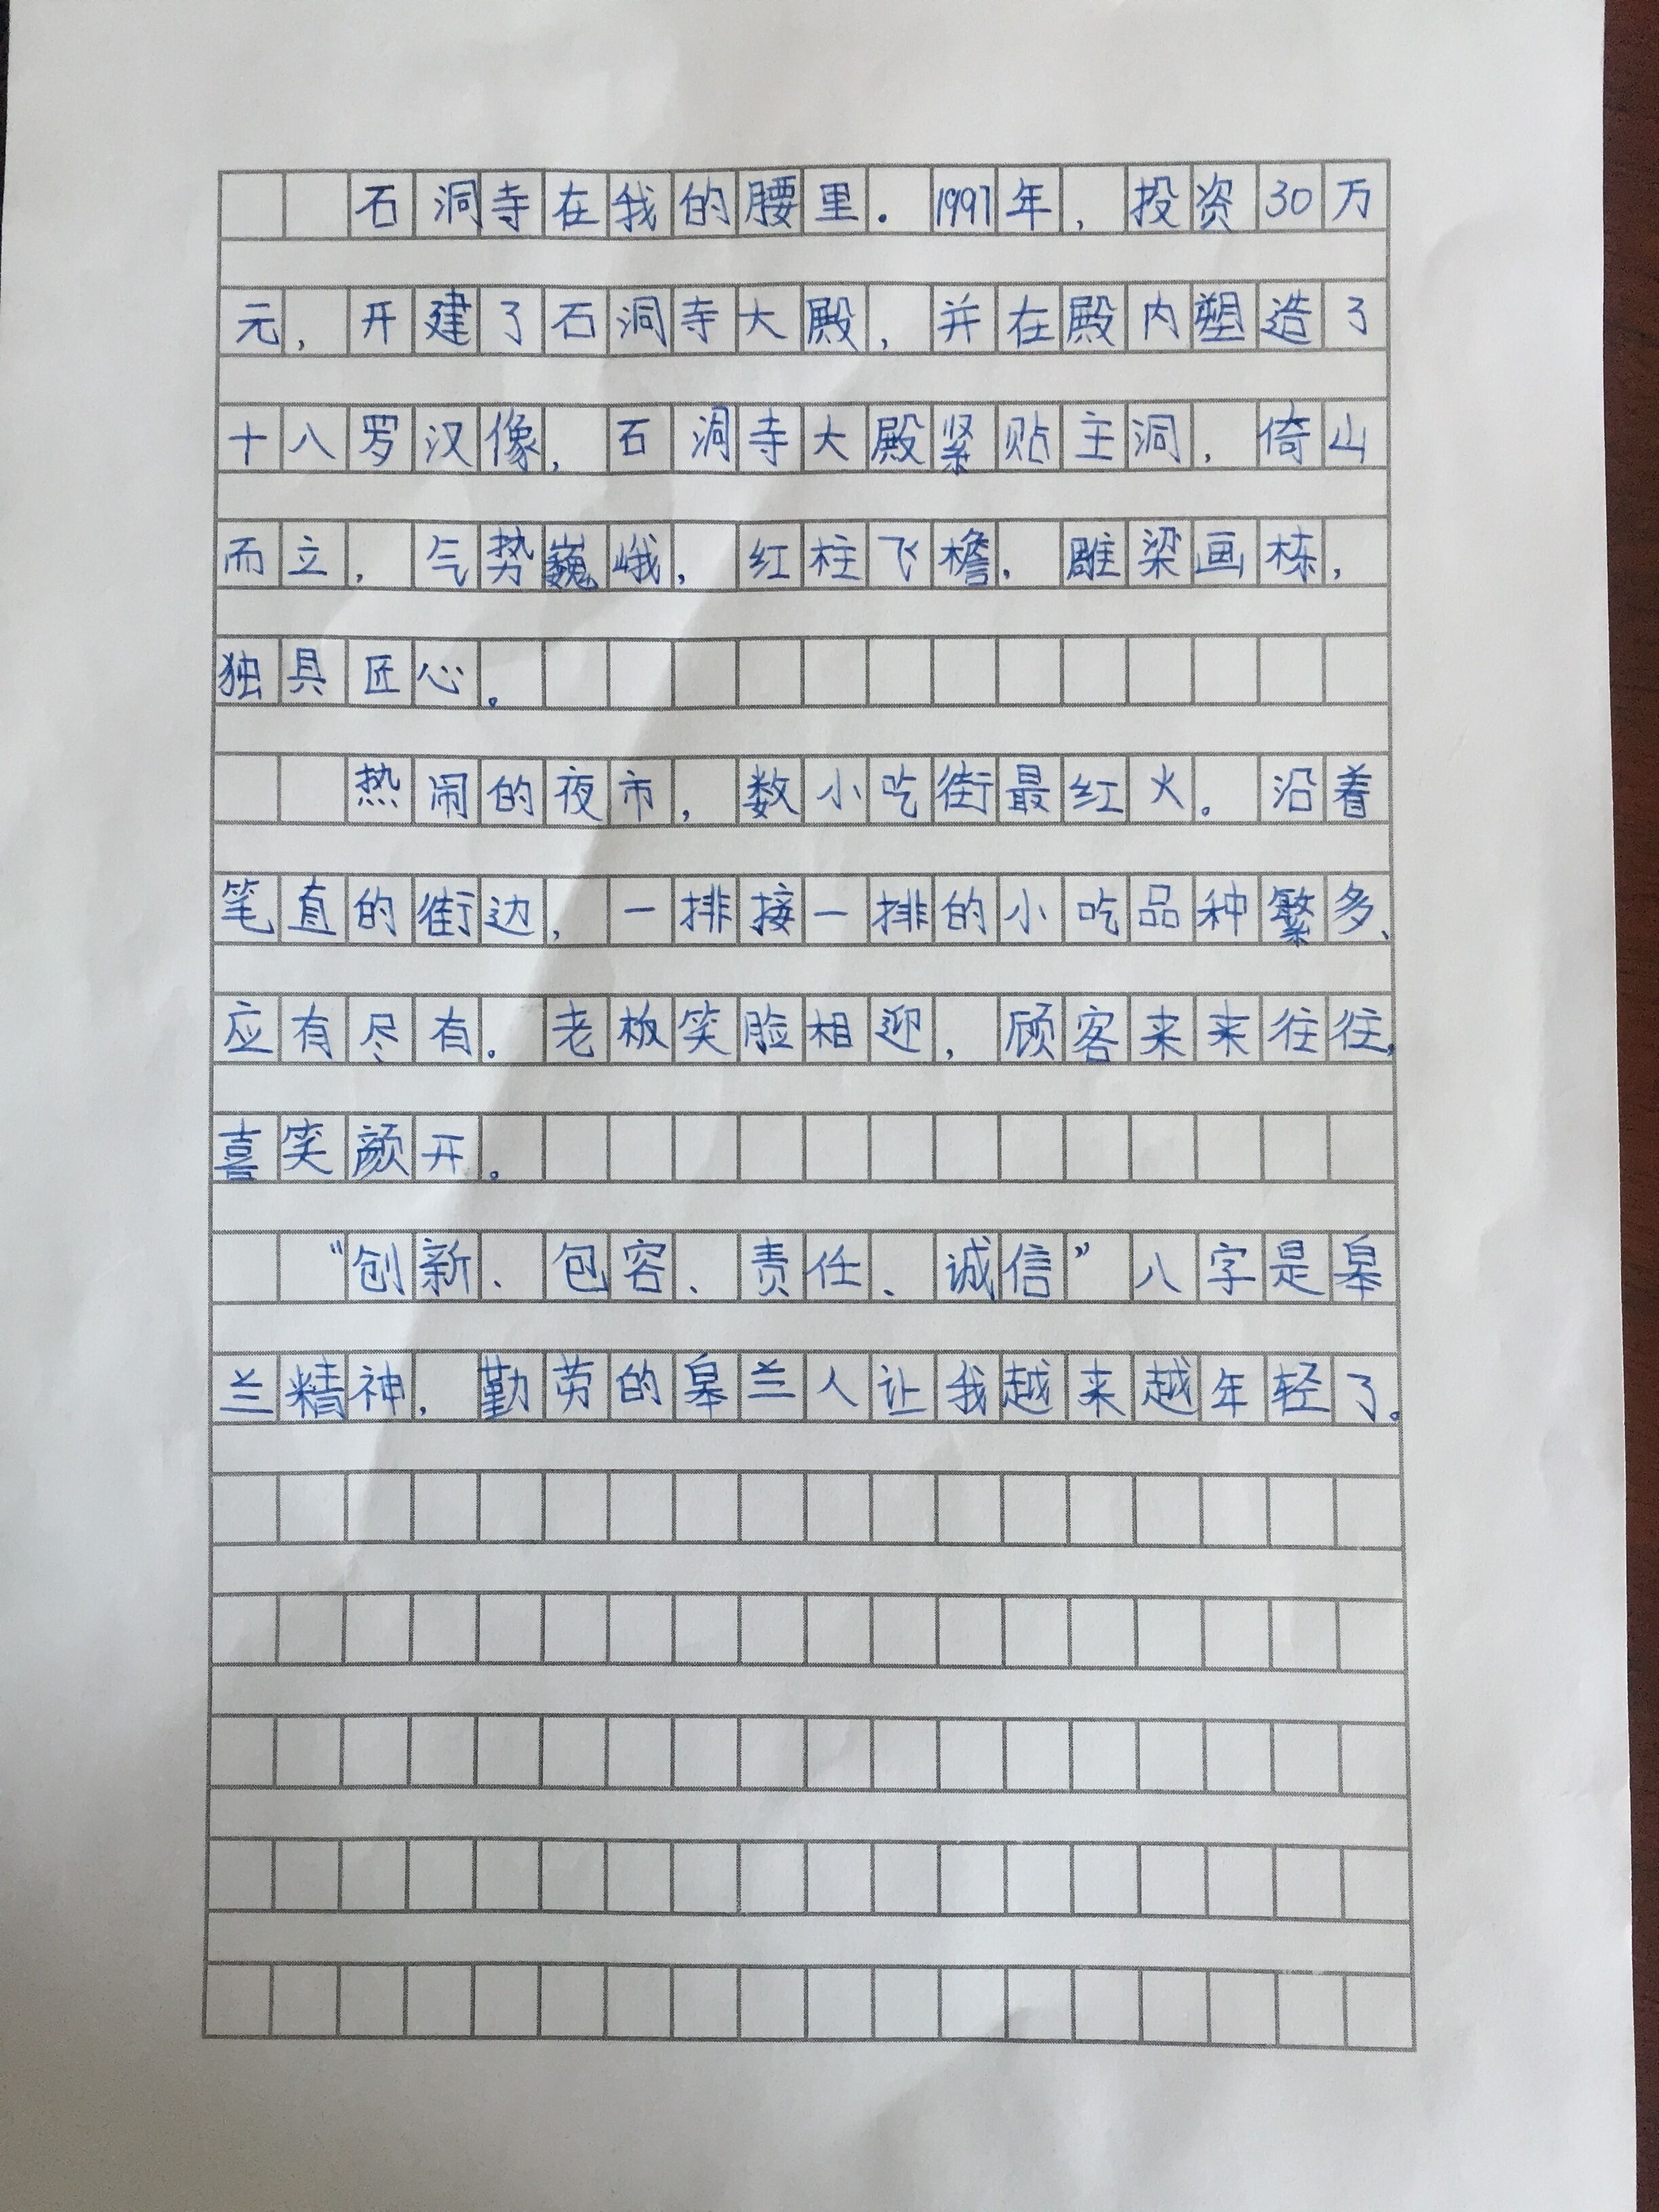 石洞寺在我的腰里．1997年，投资30万
元，开建了石洞寺大殿，并在殿内塑造了
十八罗汉像，石洞寺大殿紧贴主洞，倚山
而立，气势巍峨，红柱飞檐，雕梁画栋，
独具匠心。
热闹的夜市，数小吃街最红火。沿着
笔直的街边，一排接一排的小吃品种繁多、
应有尽有。老板笑脸相迎，顾客来来往往，
喜笑颜开。
“创新、包容、责任、诚信”八字是皋
兰精神，勤劳的皋兰人让我越来越年轻了。